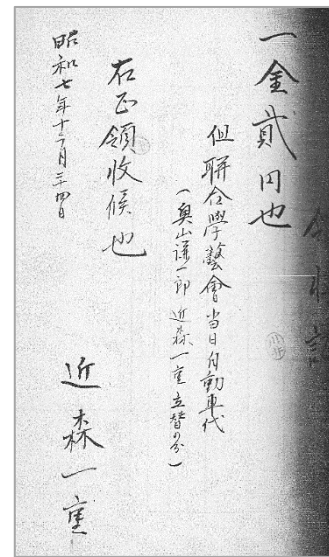 一金貳円也
但聯合學藝會当日自動車代
(奥山謹一郎近森一重立替の分)
右正領收候也
昭和七年十二月三十四日
近森一重